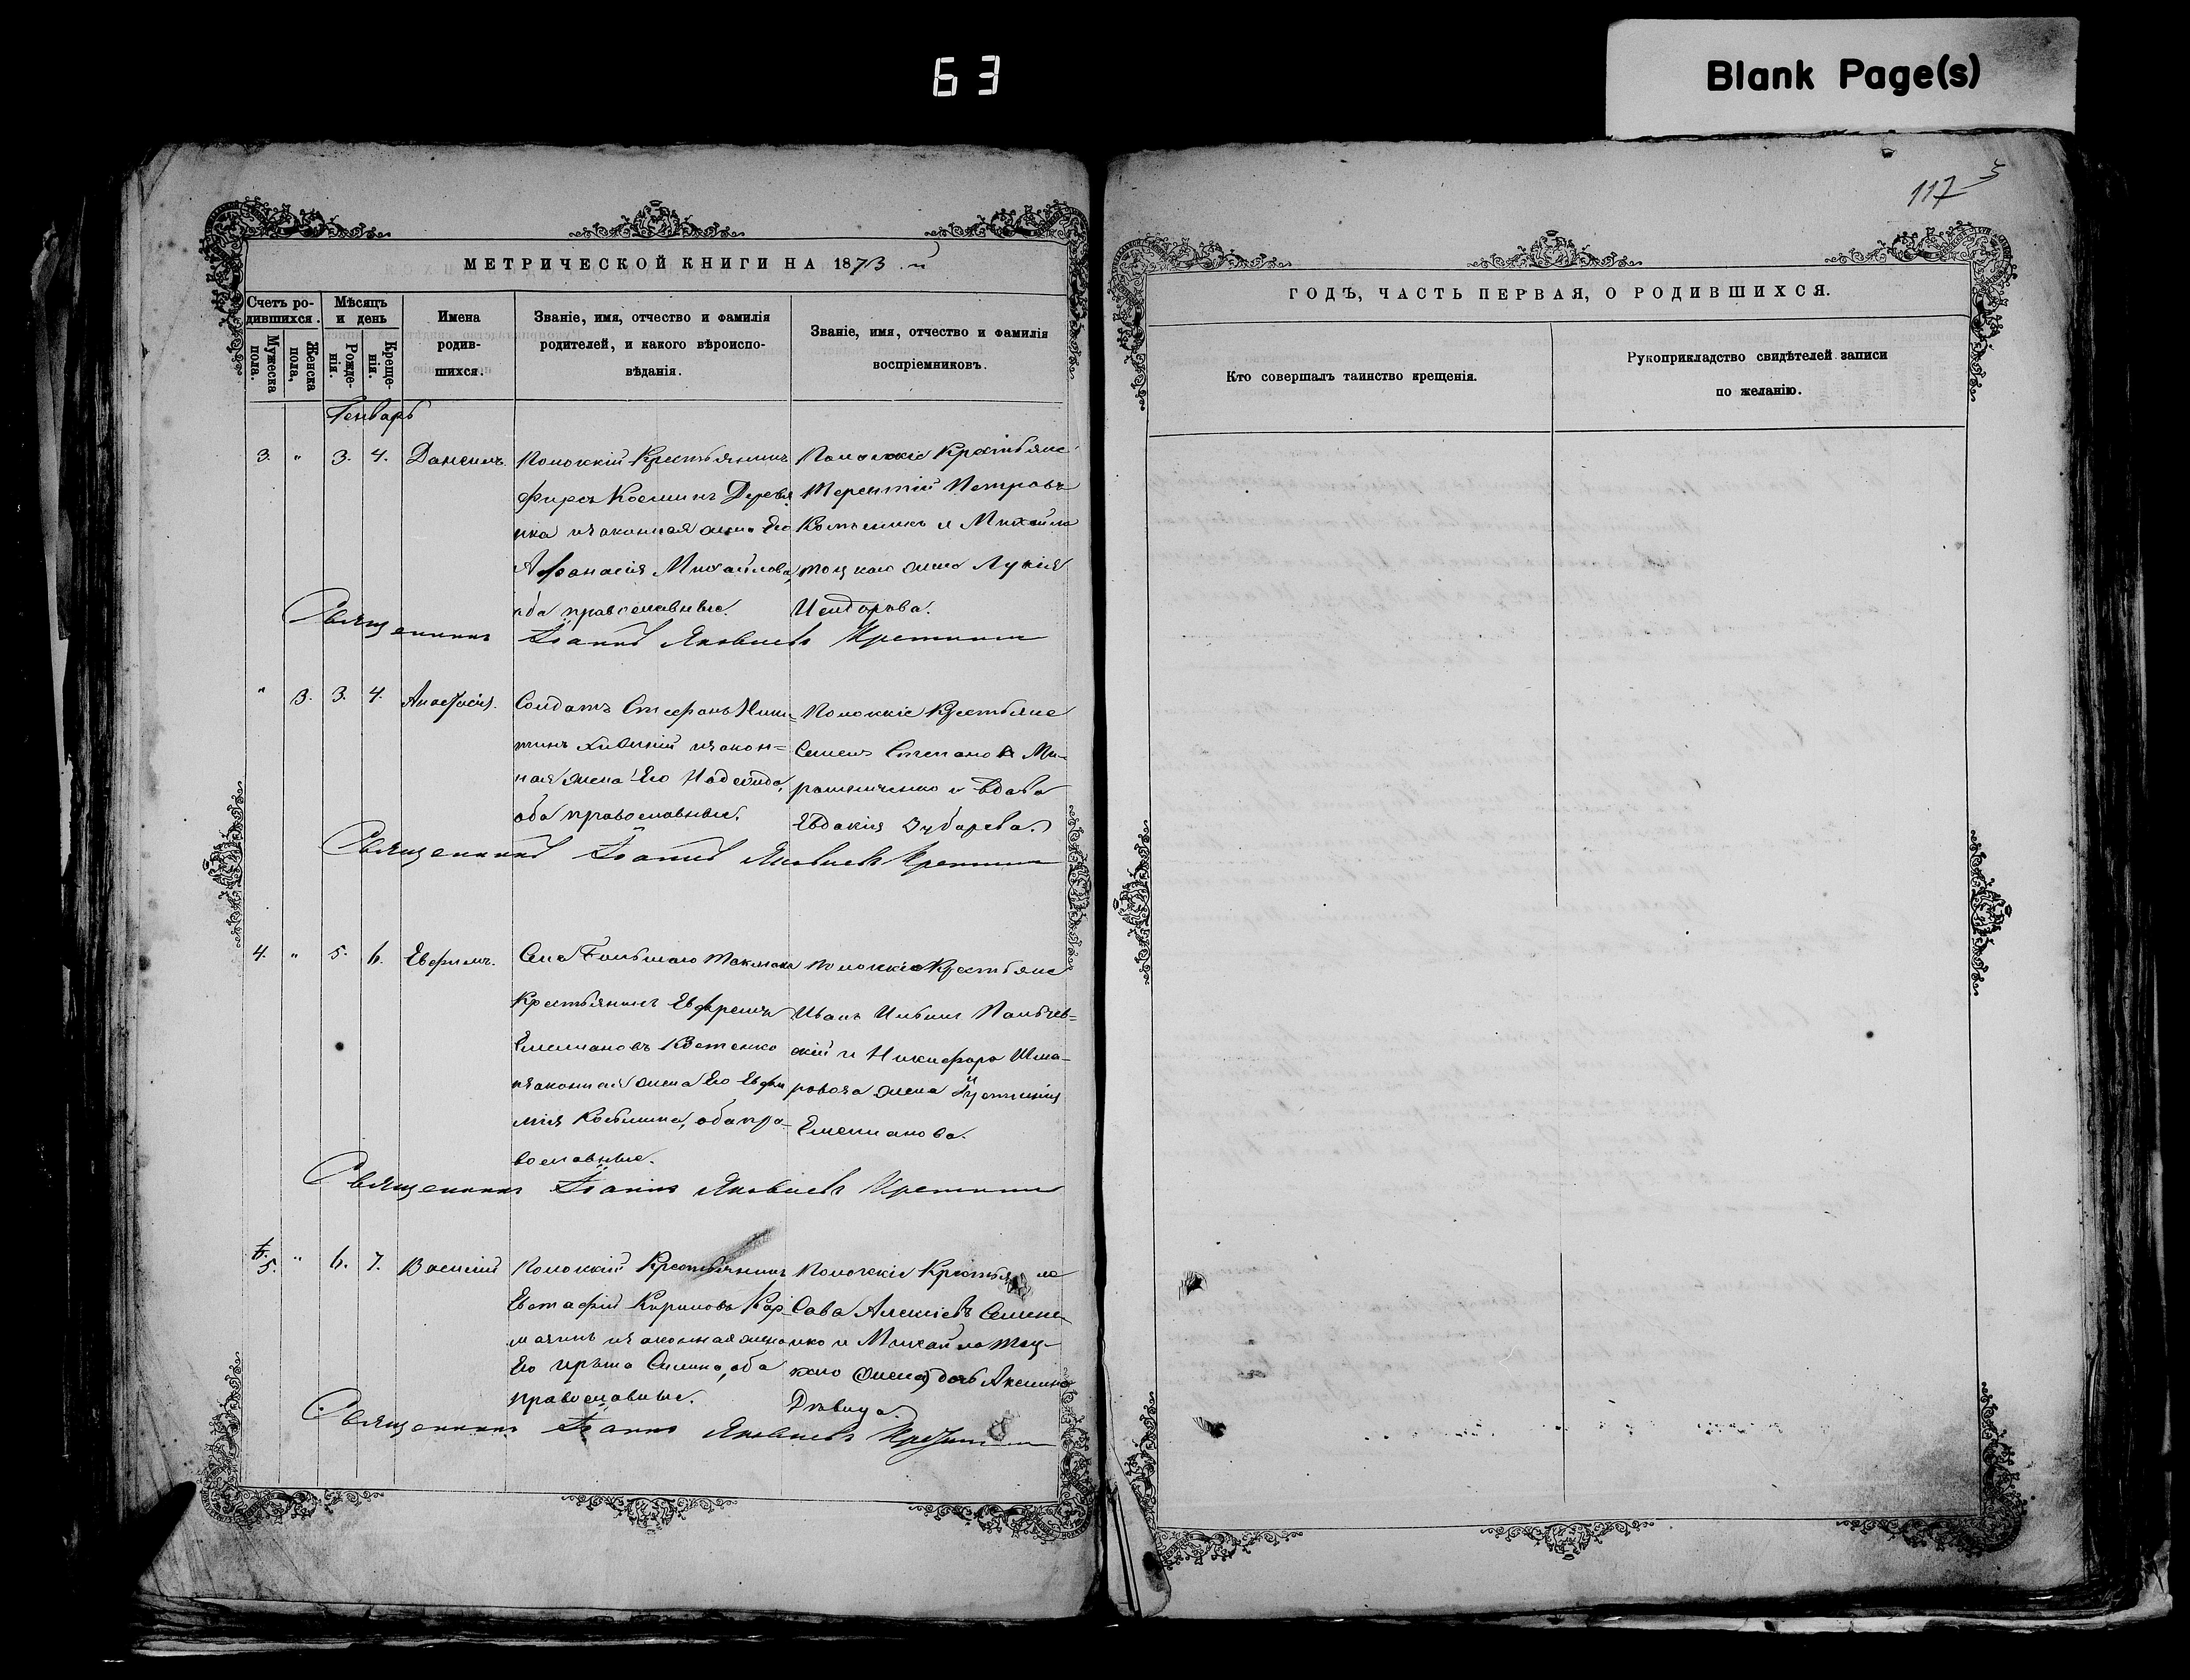 63
Blank Page(s)
117
МЕТРИЧЕСКОЙ КНИГИ НА 1873 й
Счетъ ро-
дившихся.
Мужеска
пола.
Женска
пола,
Мѣсяцъ
и день
Рожде-
нія.
Креще-
нія.
Имена
родив-
шихся.
Званіе, имя, отчество и фамилія
родителей, и какого вѣроиспо-
вѣданія.
Званіе, имя, отчество и фамилія
воспріемниковъ.
Генварь
3. " 3. 4. Даніилъ.
Крестьянинъ
Фирсъ Косминъ
законная жена Его
Афанасія Михайлова,
оба православные.
Крестьяне
Терентій Петровъ
и Михаила
жена Лукія
Исидорова.
Священникъ Іоаннъ Яковлевъ
" 3. 3. 4. Анастасія.
Солдатъ Стефанъ Ники=
тинъ и закон=
ная жена Его Надежда,
оба православные.
Крестьяне
Семенъ Степановъ Ми-
рошниченко и вдова
Евдокія Зубарева.
Священникъ Іоаннъ Яковлевъ
4. " 5. 6. Евфимъ.
Села Большаго Токмака
Крестьянинъ Евфремъ
Емелиановъ
законная жена Его Евфи
мія Космина, оба пра-
вославные.
Крестьяне
Иванъ Ильинъ
скій и Никифора Шма-
жена Іустинія
Емелианова.
Священникъ Іоаннъ Яковлевъ
5. " 6. 7. Василій
Крестьянинъ
Евстафій Кириловъ
и законная жена
Его Силина, оба
православные.
Крестьяне
Сава Алексіевъ Семене
нко и Михаила
дочь Аксинія
Дѣвица.
Священникъ Іоаннъ Яковлевъ
ГОДЪ, ЧАСТЬ ПЕРВАЯ, О РОДИВШИХСЯ.
Кто совершалъ таинство крещенія.
Рукоприкладство свидѣтелей записи
по желанію.